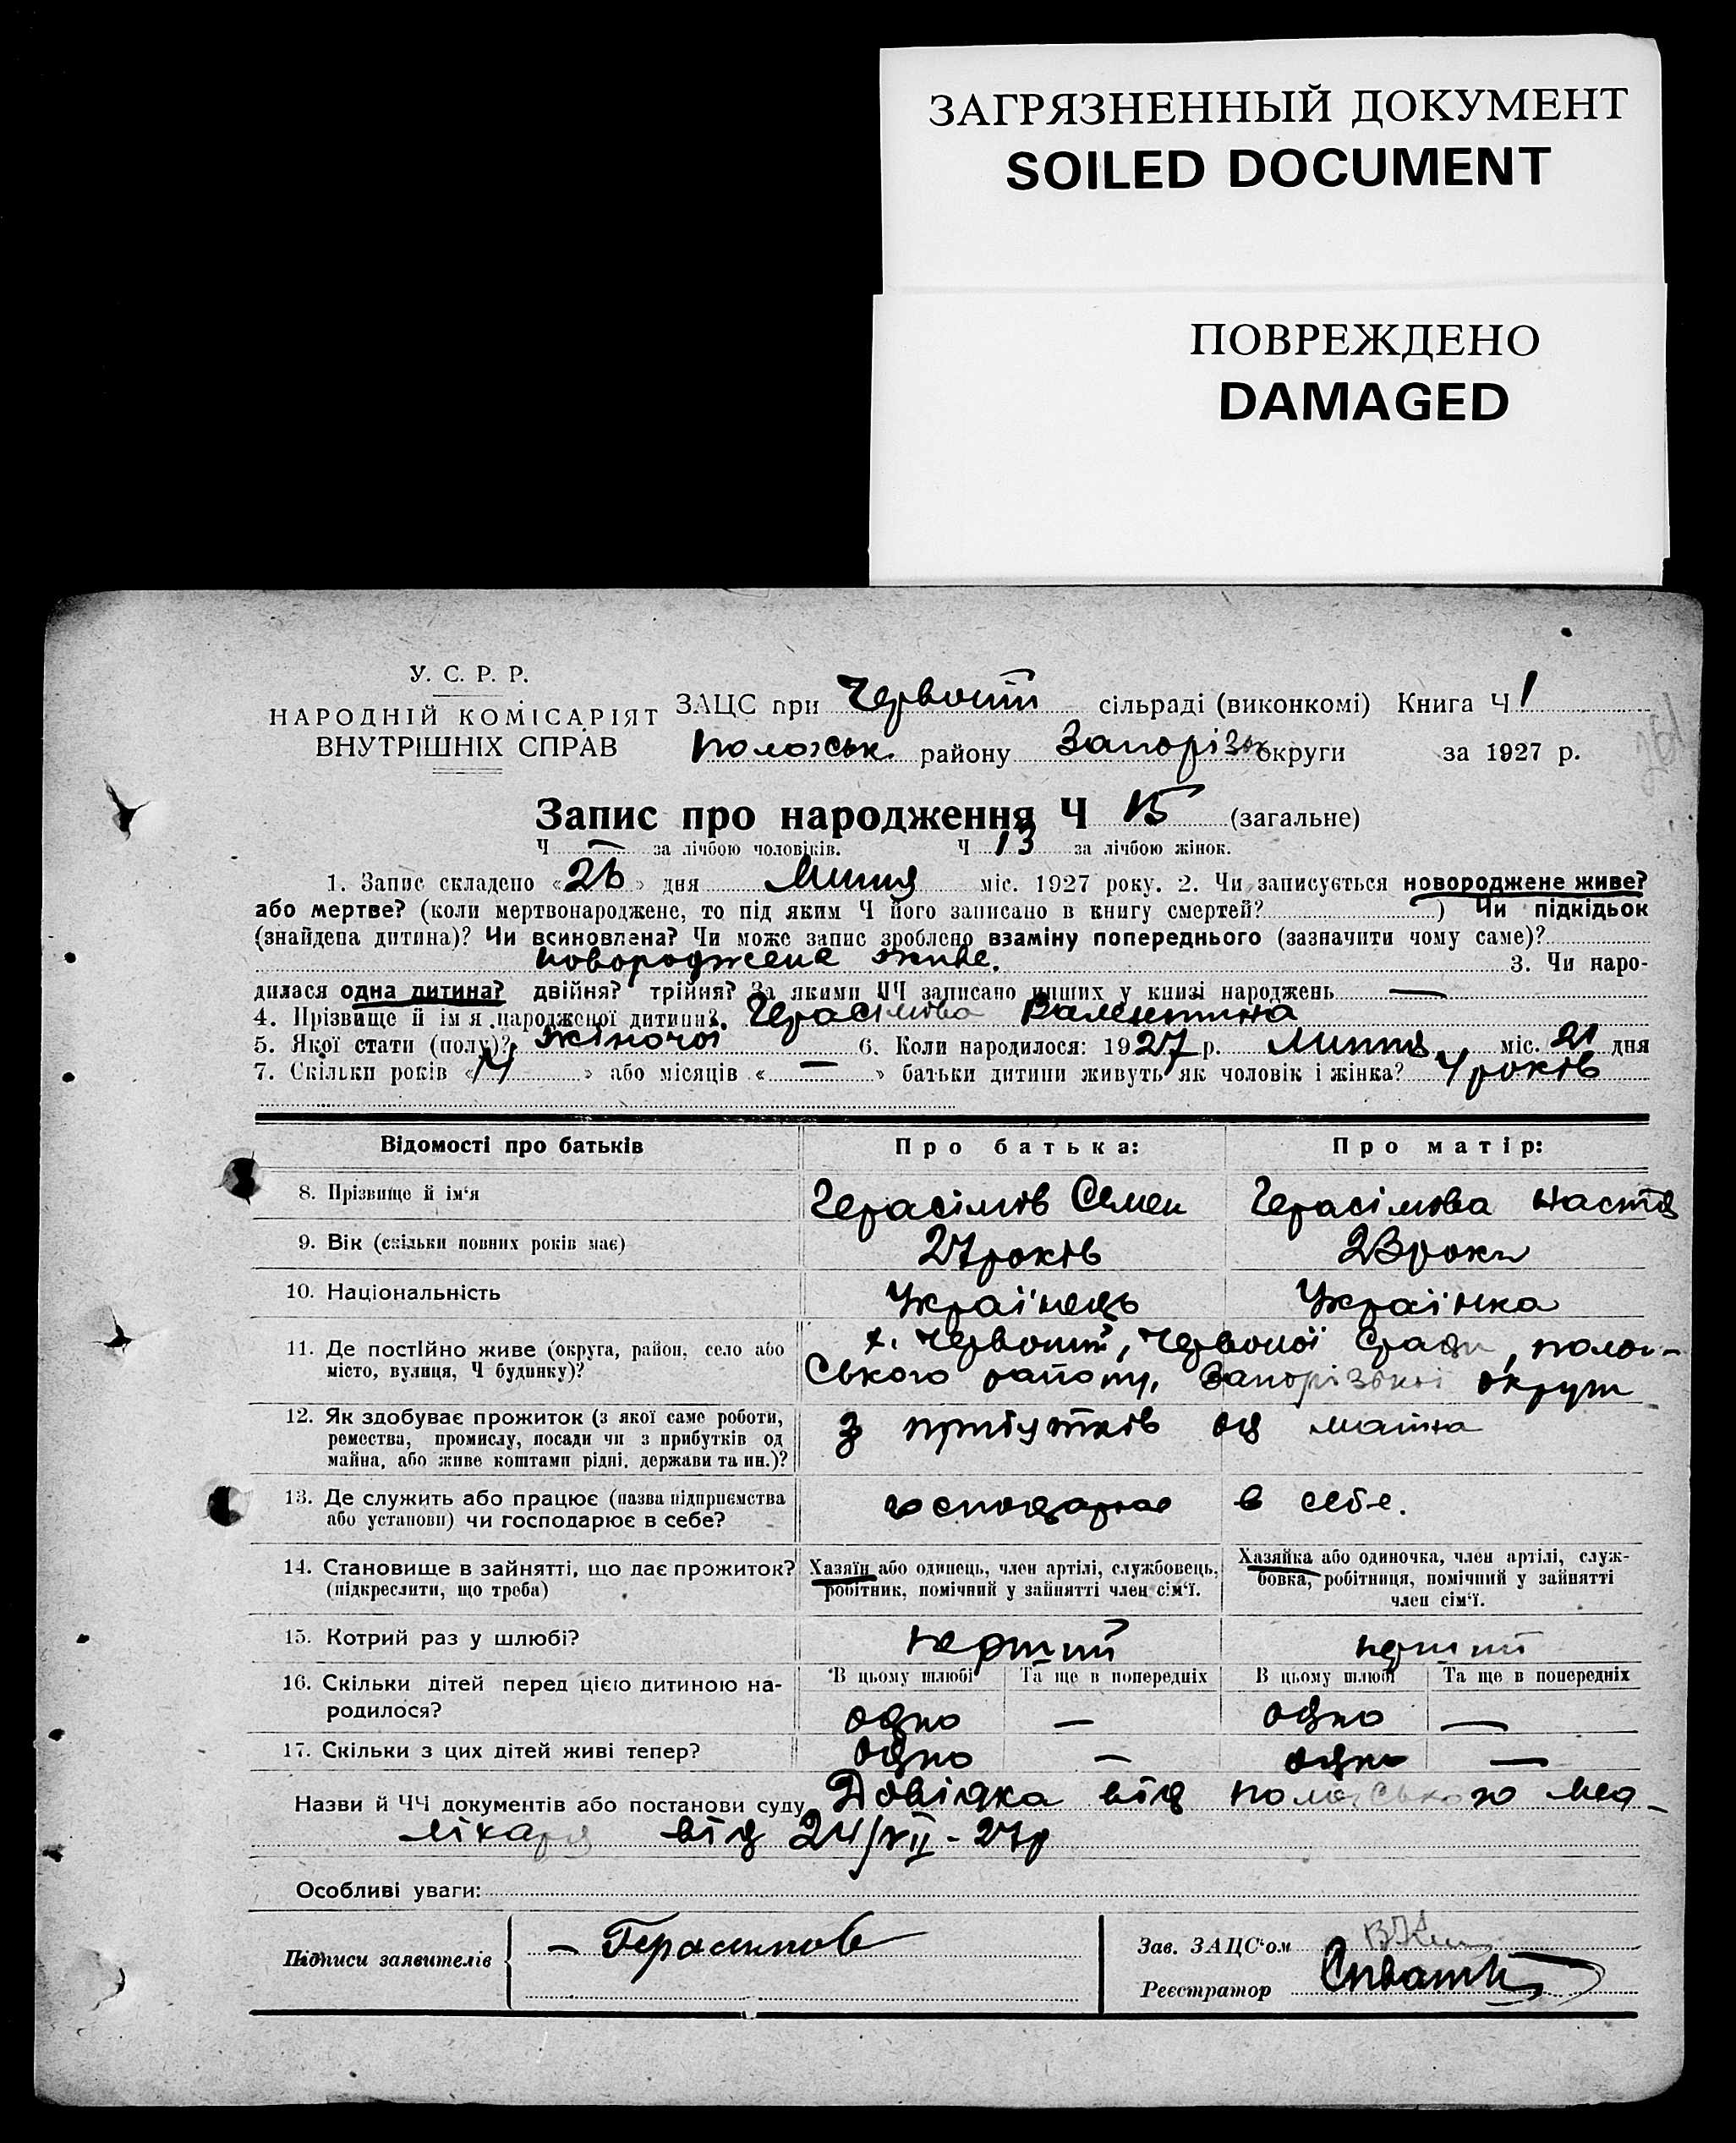 ЗАГРЯЗНЕННЫЙ ДОКУМЕНТ
SOILED DOCUMENT
ПОВРЕЖДЕНО
DAMAGED
У. С. Р. Р.
НАРОДНІЙ КОМІСАРІЯТ
ВНУТРІШНІХ СПРАВ
ЗАЦС при Червоній сільраді (виконкомі) Книга Ч 1
Положськ. району Запорізьк округи за 1927 р.
Запис про народження Ч 15 (загальне)
Ч — за лічбою чоловіків. Ч 13 за лічбою жінок.
1. Запис складено «26» дня Липня міс. 1927 року. 2. Чи записується новороджене живе?
або мертве? (коли мертвонароджене, то під яким Ч його записано в книгу смертей? ) Чи підкідьок
(знайдена дитина)? Чи всиновлена? Чи може запис зроблено взаміну попереднього (зазначити чому саме)?
новороджене живе. 3. Чи наро-
дилася одна дитина? двійня? трійня? За якими ЧЧ записано инших у книзі народжень —
4. Прізвище й ім я народженої дитини? Герасімова Валентина
5. Якої стати (полу)? жіночої 6. Коли народилося: 1927 р. Липня міс. 21 дня
7. Скільки років «4» або місяців «—» батьки дитини живуть як чоловік і жінка? 4 років
Відомості про батьків Про батька: Про матір:
8. Прізвище й ім'я Герасімов Семен Герасімова Настя
9. Вік (скільки повних років має) 27 років 23 роки
10. Національність Українець Українка
11. Де постійно живе (округа, район, село або
місто, вулиця, Ч будинку)?
х. Червоний, Червоної Сради, полог-
ського району, Запорізької округи
12. Як здобуває прожиток (з якої саме роботи,
ремества, промислу, посади чи з прибутків од
майна, або живе коштами рідні, держави та ин.)?
з прибутків од майна
13. Де служить або працює (назва підприємства
або установи) чи господарює в себе?
господарює в себе.
14. Становище в зайнятті, що дає прожиток?
(підкреслити, що треба)
Хазяїн або одинець, член артілі, службовець,
робітник, помічний у зайнятті член сім'ї.
Хазяйка або одиночка, член артілі, служ-
бовка, робітниця, помічний у зайнятті
член сім'ї.
15. Котрий раз у шлюбі? перший перший
16. Скільки дітей перед цією дитиною на-
родилося?
В цьому шлюбі Та ще в попередніх В цьому шлюбі Та ще в попередніх
одно — одно —
17. Скільки з цих дітей живі тепер? одно — одно —
Назви й ЧЧ документів або постанови суду Довідка від положського мед-
лікаря від 24/VII-27р
Особливі уваги:
Підписи заявителів — Герасимов
Зав. ЗАЦС'ом
Реєстратор